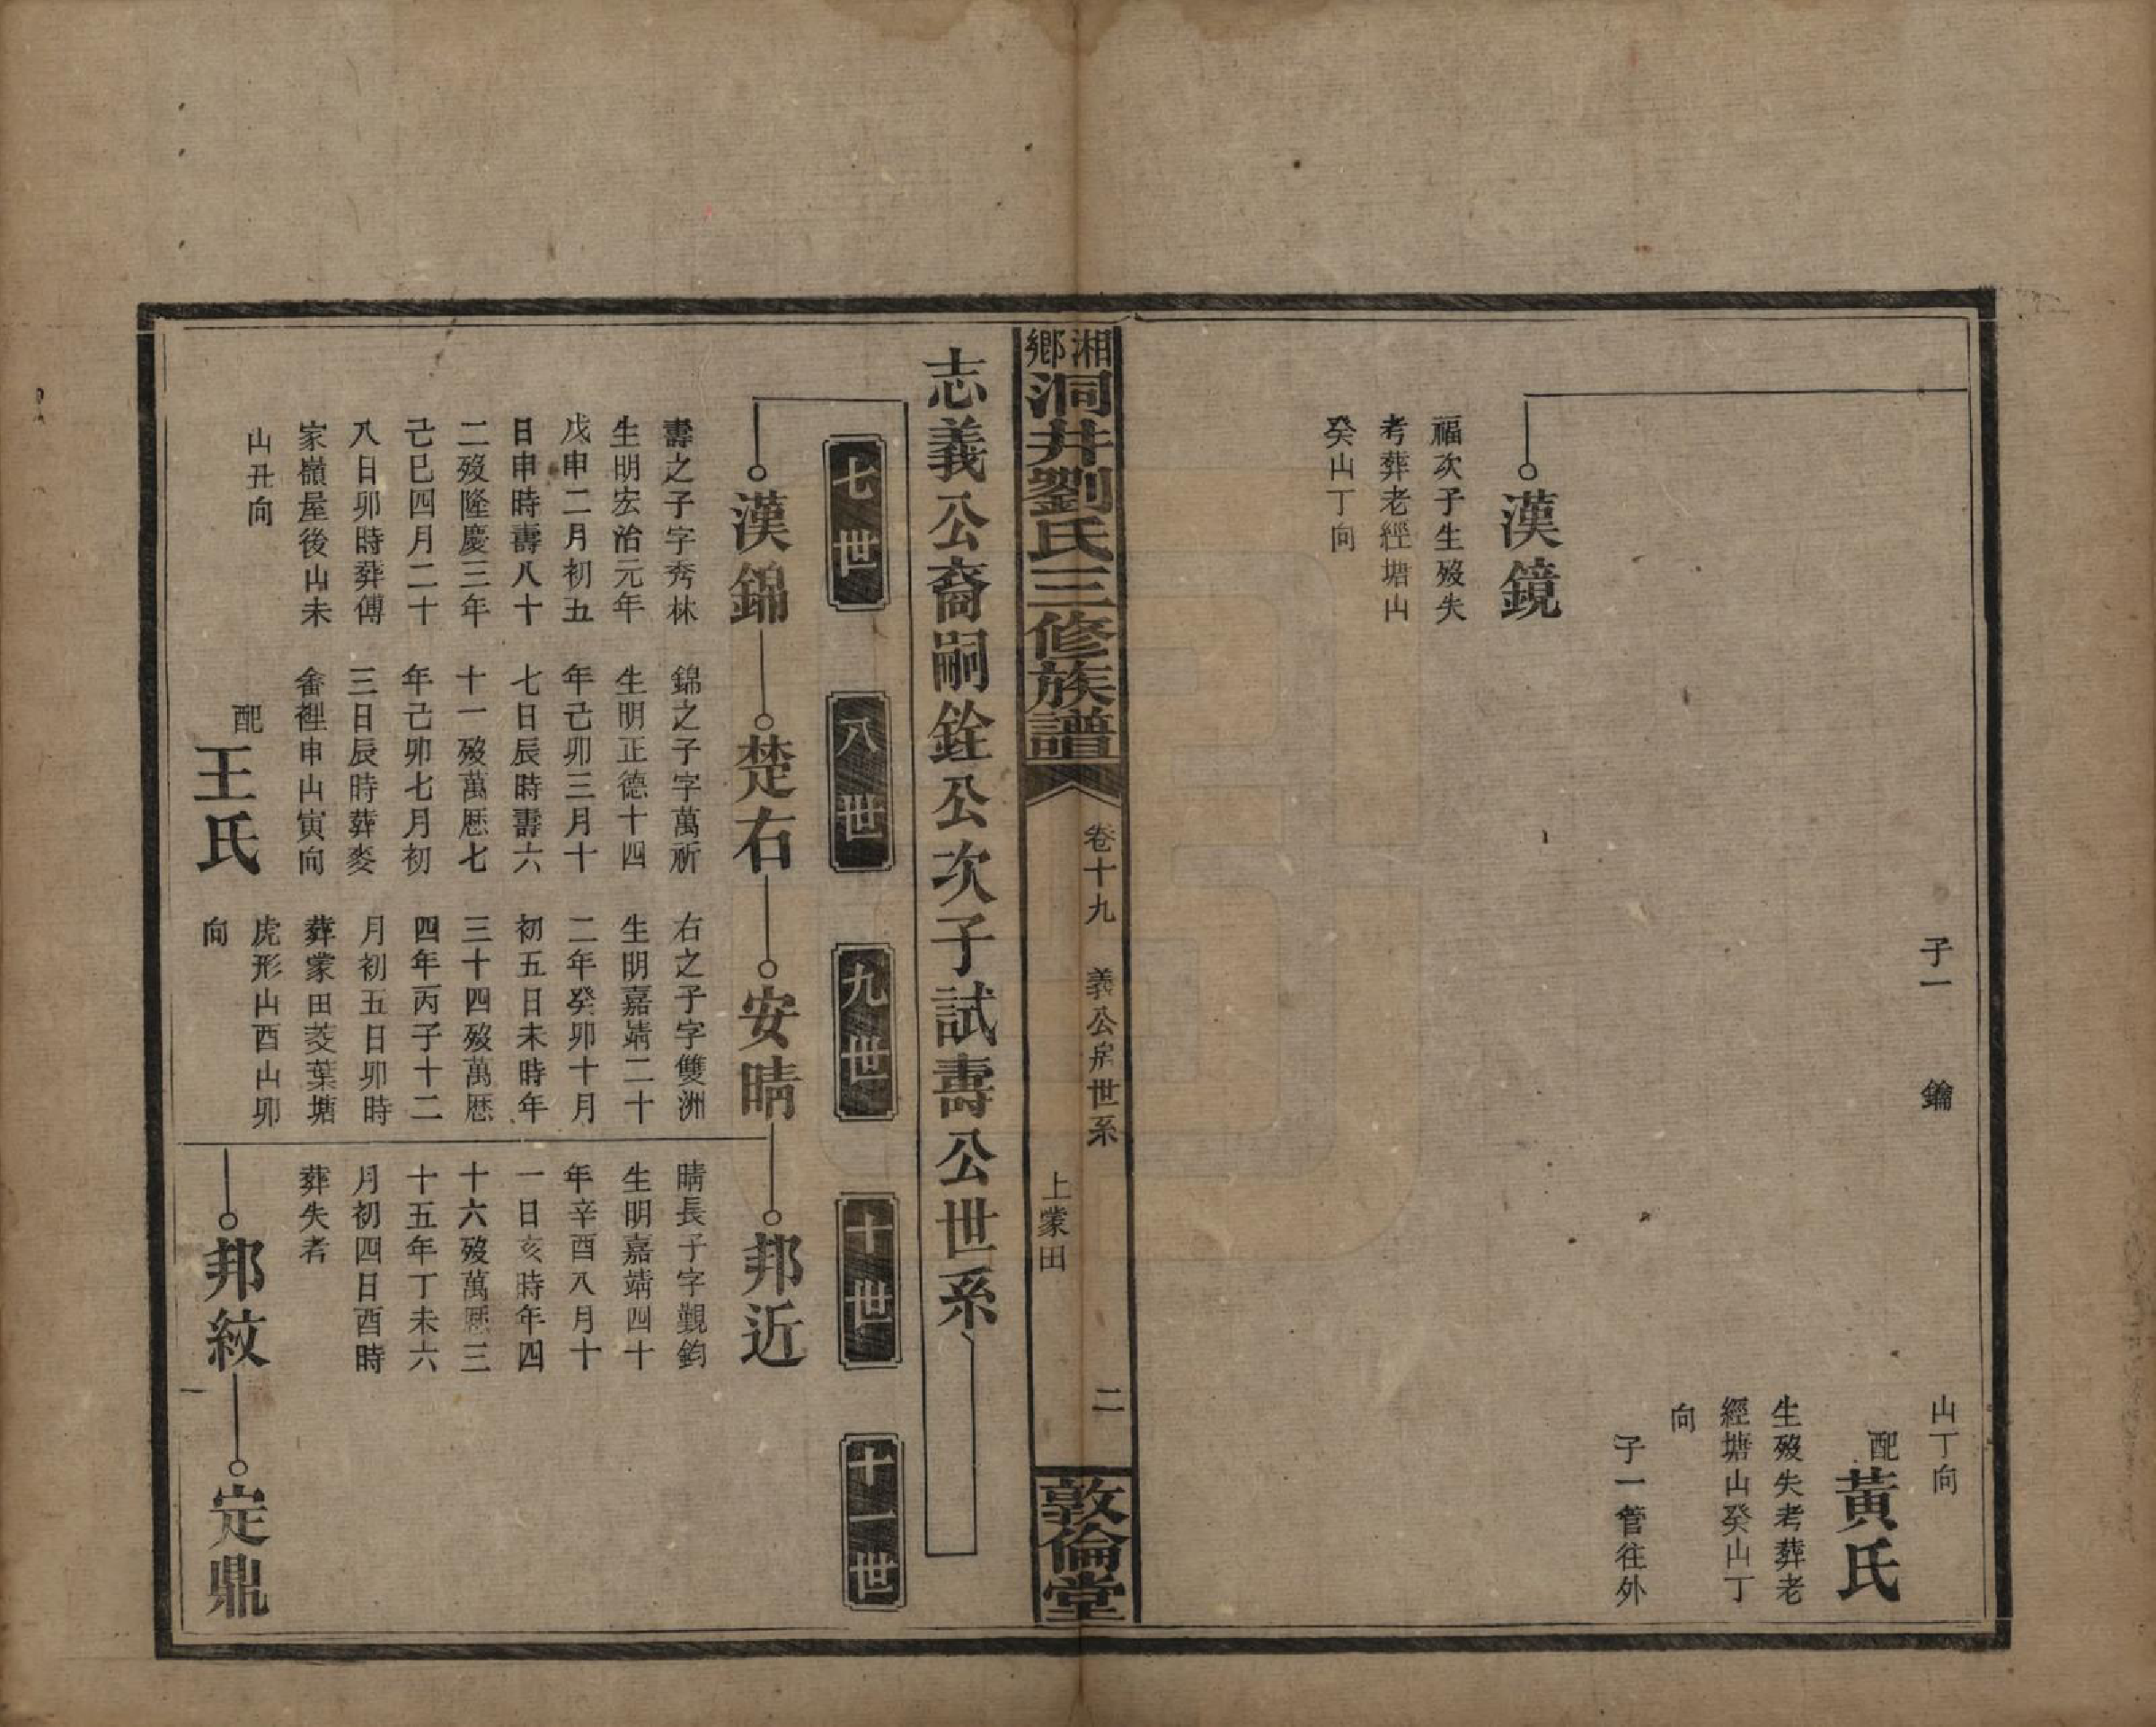 子一 鑰
山丁向
配黃氏
生歿失考葬老
經塘山癸山丁
向
子一管往外
漢鏡
福次子生歿失
考葬老經塘山
癸山丁向
湘鄉洞井劉氏三修族譜
卷十九 義公房世系
上蒙田
二
敦倫堂
志義公裔嗣銓公次子試壽公世系
七世
八世
九世
十世
十一世
漢錦
壽之子字秀林
生明宏治元年
戊申二月初五
日申時壽八十
二歿隆慶三年
己巳四月二十
八日卯時葬傅
家嶺屋後山未
山丑向
楚右
錦之子字萬祈
生明正德十四
年己卯三月十
七日辰時壽六
十一歿萬歷七
年己卯七月初
三日辰時葬麥
畬裡申山寅向
配王氏
安晴
右之子字雙洲
生明嘉靖二十
二年癸卯十月
初五日未時年
三十四歿萬歷
四年丙子十二
月初五日卯時
葬蒙田茭葉塘
虎形山酉山卯
向
邦近
晴長子字覲鈞
生明嘉靖四十
年辛酉八月十
一日亥時年四
十六歿萬歷三
十五年丁未六
月初四日酉時
葬失考
邦紋
定鼎